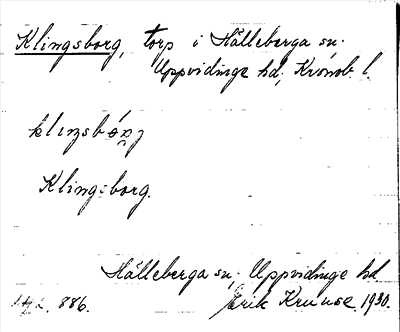 Klingsborg, torp i Hälleberga sn.
Uppvidinge hd, Kronob. l.
Klingsborg.
Hälleberga sn, Uppvidinge hd.
886. Erik Kruuse 1930.